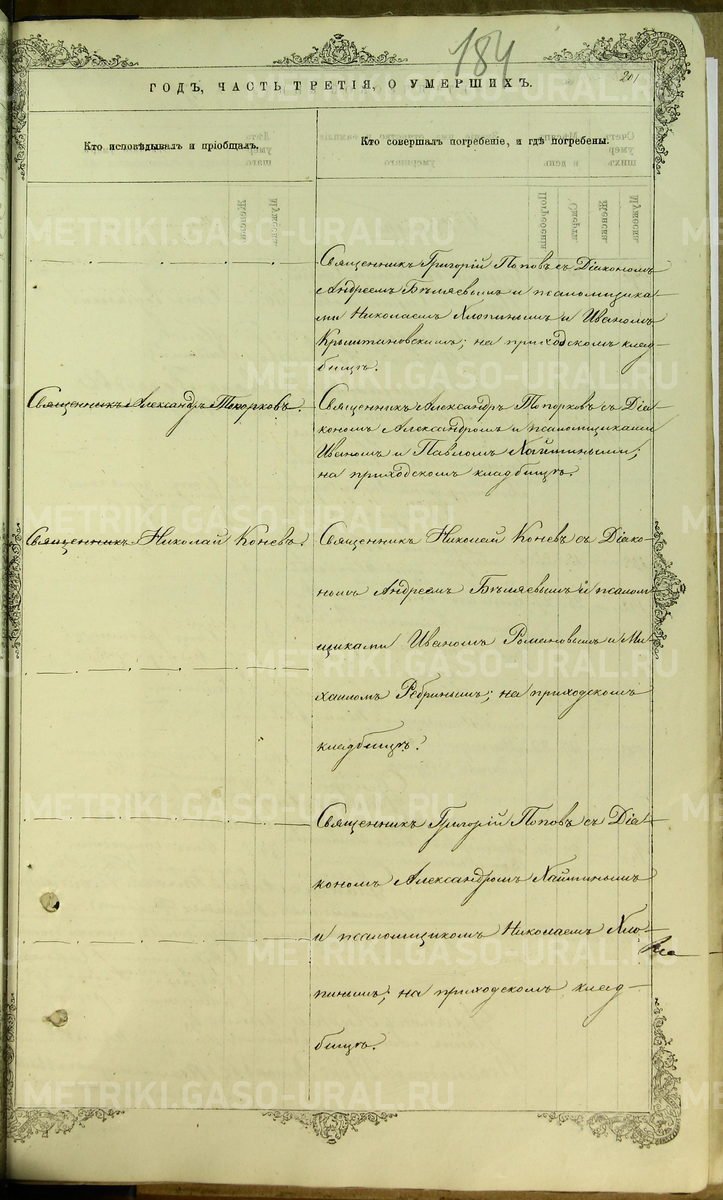 184
201
ГОДЪ, ЧАСТЬ ТРЕТІЯ, О УМЕРШИХЪ.
Кто исповѣдывалъ и пріобщалъ.
Кто совершалъ погребеніе, и гдѣ погребены.
Священникъ Григорій Поповъ съ Діакономъ
Андреемъ Бѣляевымъ и псаломщика-
ми Николаемъ Хлопинымъ и Иваномъ
Крыштановскимъ; на приходскомъ клад-
бищѣ.
Священникъ Александръ Топорковъ.
Священникъ Александръ Топорковъ съ Діа-
кономъ Александромъ и псаломщиками
Иваномъ и Павломъ Хайтиными;
на приходскомъ кладбищѣ.
Священникъ Николай Коневъ.
Священникъ Николай Коневъ съ Діако-
номъ Андреемъ Бѣляевымъ и псалом-
щиками Иваномъ Романовымъ и Ми-
хаиломъ Ребринымъ; на приходскомъ
кладбищѣ.
Священникъ Григорій Поповъ съ Діа-
кономъ Александромъ Хайтинымъ
и псаломщикомъ Николаемъ Хло-
пинымъ; на приходскомъ клад-
бищѣ.
METRIKI.GASO-URAL.RU